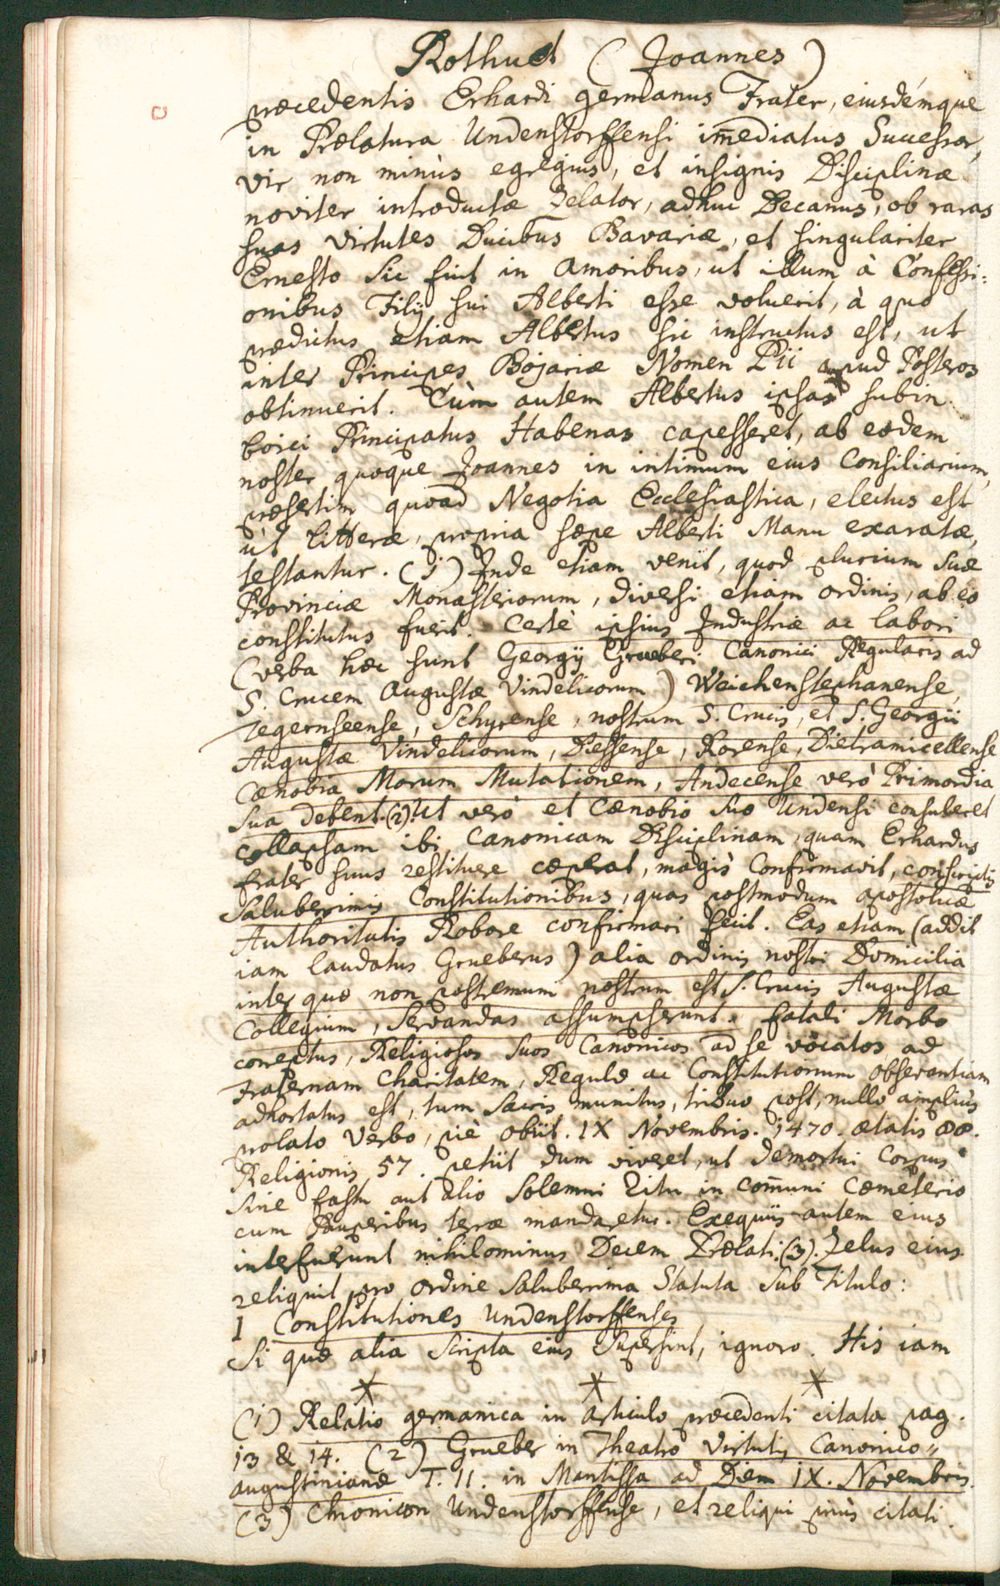 Rothuet (Joannes)
præcedentis Erhardi germanus Frater, eiusdémque
in Prælatura Undenstorffensi im̄ediatus Successor,
vir non minùs egregius, et insignis Disciplinæ
noviter introductæ Zelator, adhuc Decanus, ob raras
suas virtutes Ducibus Bavariæ, et singulariter
Ernesto sic fuit in amoribus, ut illum à Confessi:
onibus Filij sui Alberti esse voluerit, à quo
prædictus etiam Albertus sic instructus est, ut
inter Principes Bojariæ Nomen Pii apud Posteros
obtinuerit. Cùm autem Albertus ipsas subin
boici Principatus Habenas capesseret, ab eodem
noster quoque Joannes in intimum eius Consiliarium,
præsertim quoad Negotia Ecclesiastica, electus est
ùt litteræ, propria sæpe Alberti Manu exaratæ,
testantur. (1) Inde etiam venit, quod plurium suæ
Provinciæ Monasteriorum, diversi etiam ordinis, ab eo
constitutus fuerit. Certè ipsius Industriæ ac labori
(verba hæc sunt Georgij Grueberi Canonici Regularis ad
S. Crucem Augustæ Vindelicorum) Weichenstephanense,
Tegernseense, Schyrense, nostrum S. Crucis, et S. Georgii
Augustæ Vindelicorum, Diessense, Rorense, Dietramicellense
Cænobia Morum Mutationem, Andecense verò Primordia
sua debent. (2) Ut verò et Cænobio suo Undensi consuleret
collapsam ibi Canonicam Disciplinam, quam Erhardus
frater suus restituere cœperat, magis confirmavit, conscriptis
Saluberrimis Constitutionibus, quas postmodum apostolicæ
Authoritatis Robore confirmari fecit. Eas etiam (addit
iam laudatus Grueberus) alia ordinis nostri Domicilia
inter quæ non postremum nostrum est S. Crucis Augustæ
Collegium, servandas assumpserunt. fatali Morbo
correptus, Religiosos suos Canonicos ad se vocatos ad
Fraternam Charitatem, Regulæ ac Constitutionum observantiam
adhortatus est, tum sacris munitus, triduo post, nullo ampliùs
prolato verbo, piè obiit. IX Novembris. 1470. ætatis 88.
Religionis 57. petiit dum viveret, ut demortui Corpus
sine fastu aut alio solemni Ritu in com̄uni Cæmeterio
cum Pauperibus terræ mandaretur. Exequiis autem eius
interfuerunt nihilominus Decem Prælati (3). Zelus eius
reliquit pro ordine saluberrima Statuta sub Titulo:
I Constitutiones Undenstorffenses
Si quæ alia Scripta eius supersint, ignoro. His iam
(1) Relatio germanica in articulo præcedenti citata pag.
13 & 14. (2) Grueber in Theatro virtutis Canonico=
augustinianæ T. II. in Mantissa ad Diem IX. Novembris.
(3) Chronicon Undenstorffense, et reliqui priùs citati.